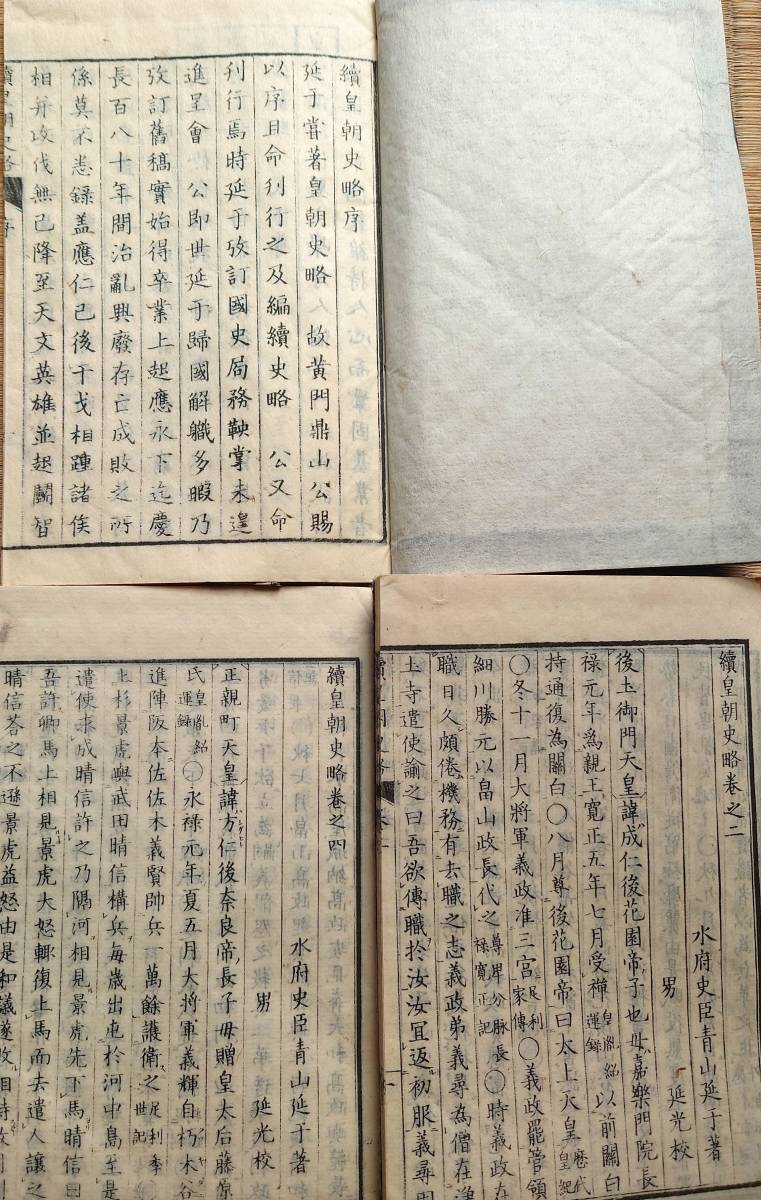 續皇朝史略序
延于嘗著皇朝史略　故黄門鼎山公賜
以序且命刋行之及編續史略　公又命
刋行焉時延于攷訂國史局務鞅掌未遑
進呈會　公即世延于歸國解職多暇乃
攷訂舊稿實始得卒業上起應永下迄慶
長百八十年間治亂興廢存亡成敗之所
係莫不悉録盖應仁已後干戈相踵諸侯
相并攻伐無已降至天文英雄並起鬪智
續皇朝史略　序
續皇朝史略卷之二
水府史臣青山延于著
男　延光校
後土御門天皇諱成仁後花園帝子也母嘉樂門院長
禄元年為親王寛正五年七月受禅皇胤紹運録以前關白
持通復為關白〇八月尊後花園帝曰太上天皇歴代皇紀
〇冬十一月大將軍義政准三宮足利家傳〇義政罷管領
細川勝元以畠山政長代之尊卑分脉長禄寛正記〇時義政在
職日久頗倦機務有去職之志義政弟義尋為僧在浄
土寺遣使諭之曰吾欲傳職於汝汝冝返初服義尋固
續皇朝史略　卷二
續皇朝史略卷之四
水府史臣青山延于著
男　延光校
正親町天皇諱方仁後奈良帝長子母贈皇太后藤原
氏皇胤紹運録〇永禄元年夏五月大將軍義輝自朽木谷
進陣阪本佐佐木義賢帥兵一萬餘護衛之足利季世記
上杉景虎與武田晴信構兵毎歳出屯於河中島至是
遣使求成晴信許之乃隔河相見景虎先下馬晴信曰
吾許卿馬上相見景虎大怒輙復上馬而去遣人讓之
晴信荅之不遜景虎益怒由是和議遂敗相持